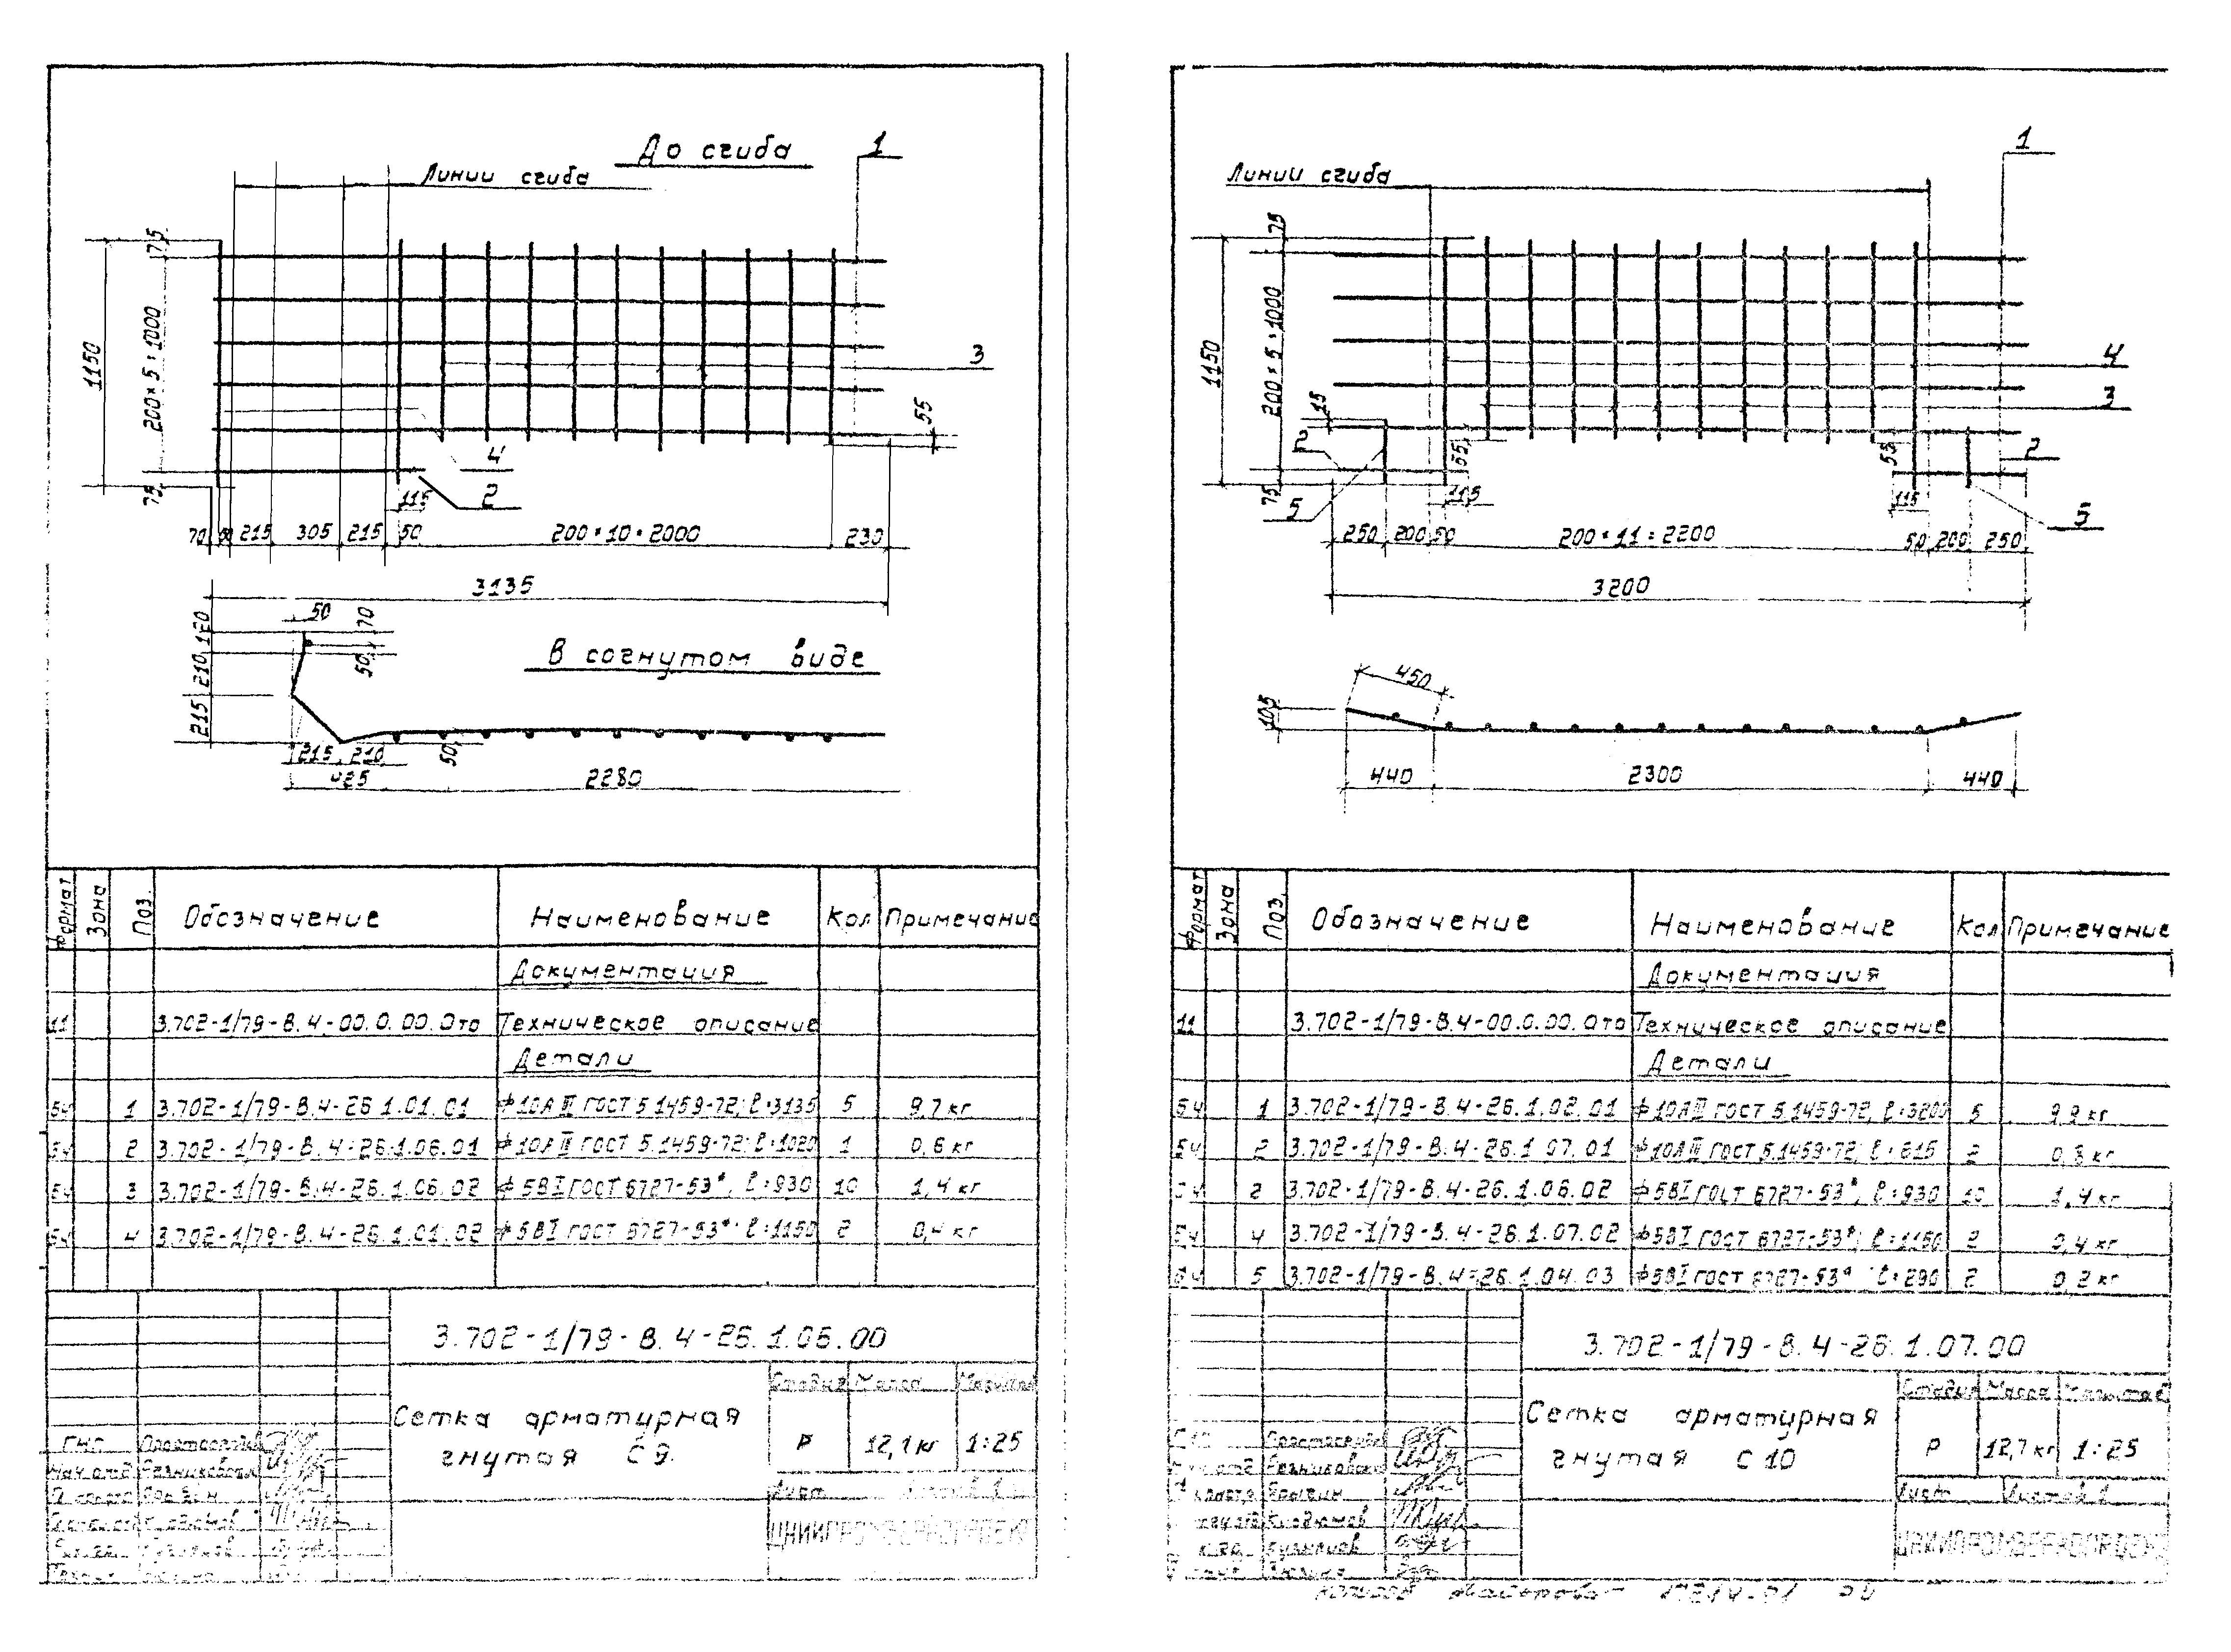 До сгиба
Линии сгиба
1
75
200×5=1000
1150
75
3
55
4
2
115
70 50 215 305 215 50 200×10=2000 230
3135
50
70
50
120
210
215
В согнутом виде
215 210
425
50
2280
Формат Зона Поз. Обозначение Наименование Кол Примечание
Документация
11 3.702-1/79-В.4-00.0.00.0то Техническое описание
Детали
БЧ 1 3.702-1/79-В.4-26.1.01.01 ф10АIII ГОСТ 5.1459-72; ℓ=3135 5 9.7 кг
БЧ 2 3.702-1/79-В.4-26.1.06.01 ф10АIII ГОСТ 5.1459-72; ℓ=1020 1 0,6 кг
БЧ 3 3.702-1/79-В.4-26.1.06.02 ф5ВI ГОСТ 6727-53*; ℓ=930 10 1,4 кг
БЧ 4 3.702-1/79-В.4-26.1.01.02 ф5ВI ГОСТ 6727-53* ℓ=1150 2 0,4 кг
3.702-1/79-В.4-26.1.06.00
Сетка арматурная
гнутая С 9.
Стадия Масса
Р 12,1 кг 1:25
Лист
ГИП
Нач.отд.
Линии сгиба
1
75
200×5=1000
1150
75
15
2
5
55
115
4
3
2
55
115
5
250 200 50 200×11=2200 50 200 250
3200
450
105
440 2300 440
Формат Зона Поз. Обозначение Наименование Кол Примечание
Документация
11 3.702-1/79-В.4-00.0.00.0то Техническое описание
Детали
БЧ 1 3.702-1/79-В.4-26.1.02.01 ф10АIII ГОСТ 5.1459-72, ℓ=3200 5 9.9 кг
БЧ 2 3.702-1/79-В.4-26.1.07.01 ф10АIII ГОСТ 5.1459-72; ℓ=615 2 0,8 кг
БЧ 2 3.702-1/79-В.4-26.1.06.02 ф5ВI ГОСТ 6727-53*; ℓ=930 10 1,4 кг
БЧ 4 3.702-1/79-В.4-26.1.07.02 ф5ВI ГОСТ 6727-53*; ℓ=1150 2 0,4 кг
БЧ 5 3.702-1/79-В.4-26.1.04.03 ф5ВI ГОСТ 6727-53* ℓ=290 2 0,2 кг
3.702-1/79-В.4-26.1.07.00
Сетка арматурная
гнутая С 10
Стадия Масса Масштаб
Р 12,7 кг 1:25
Лист Листов 1